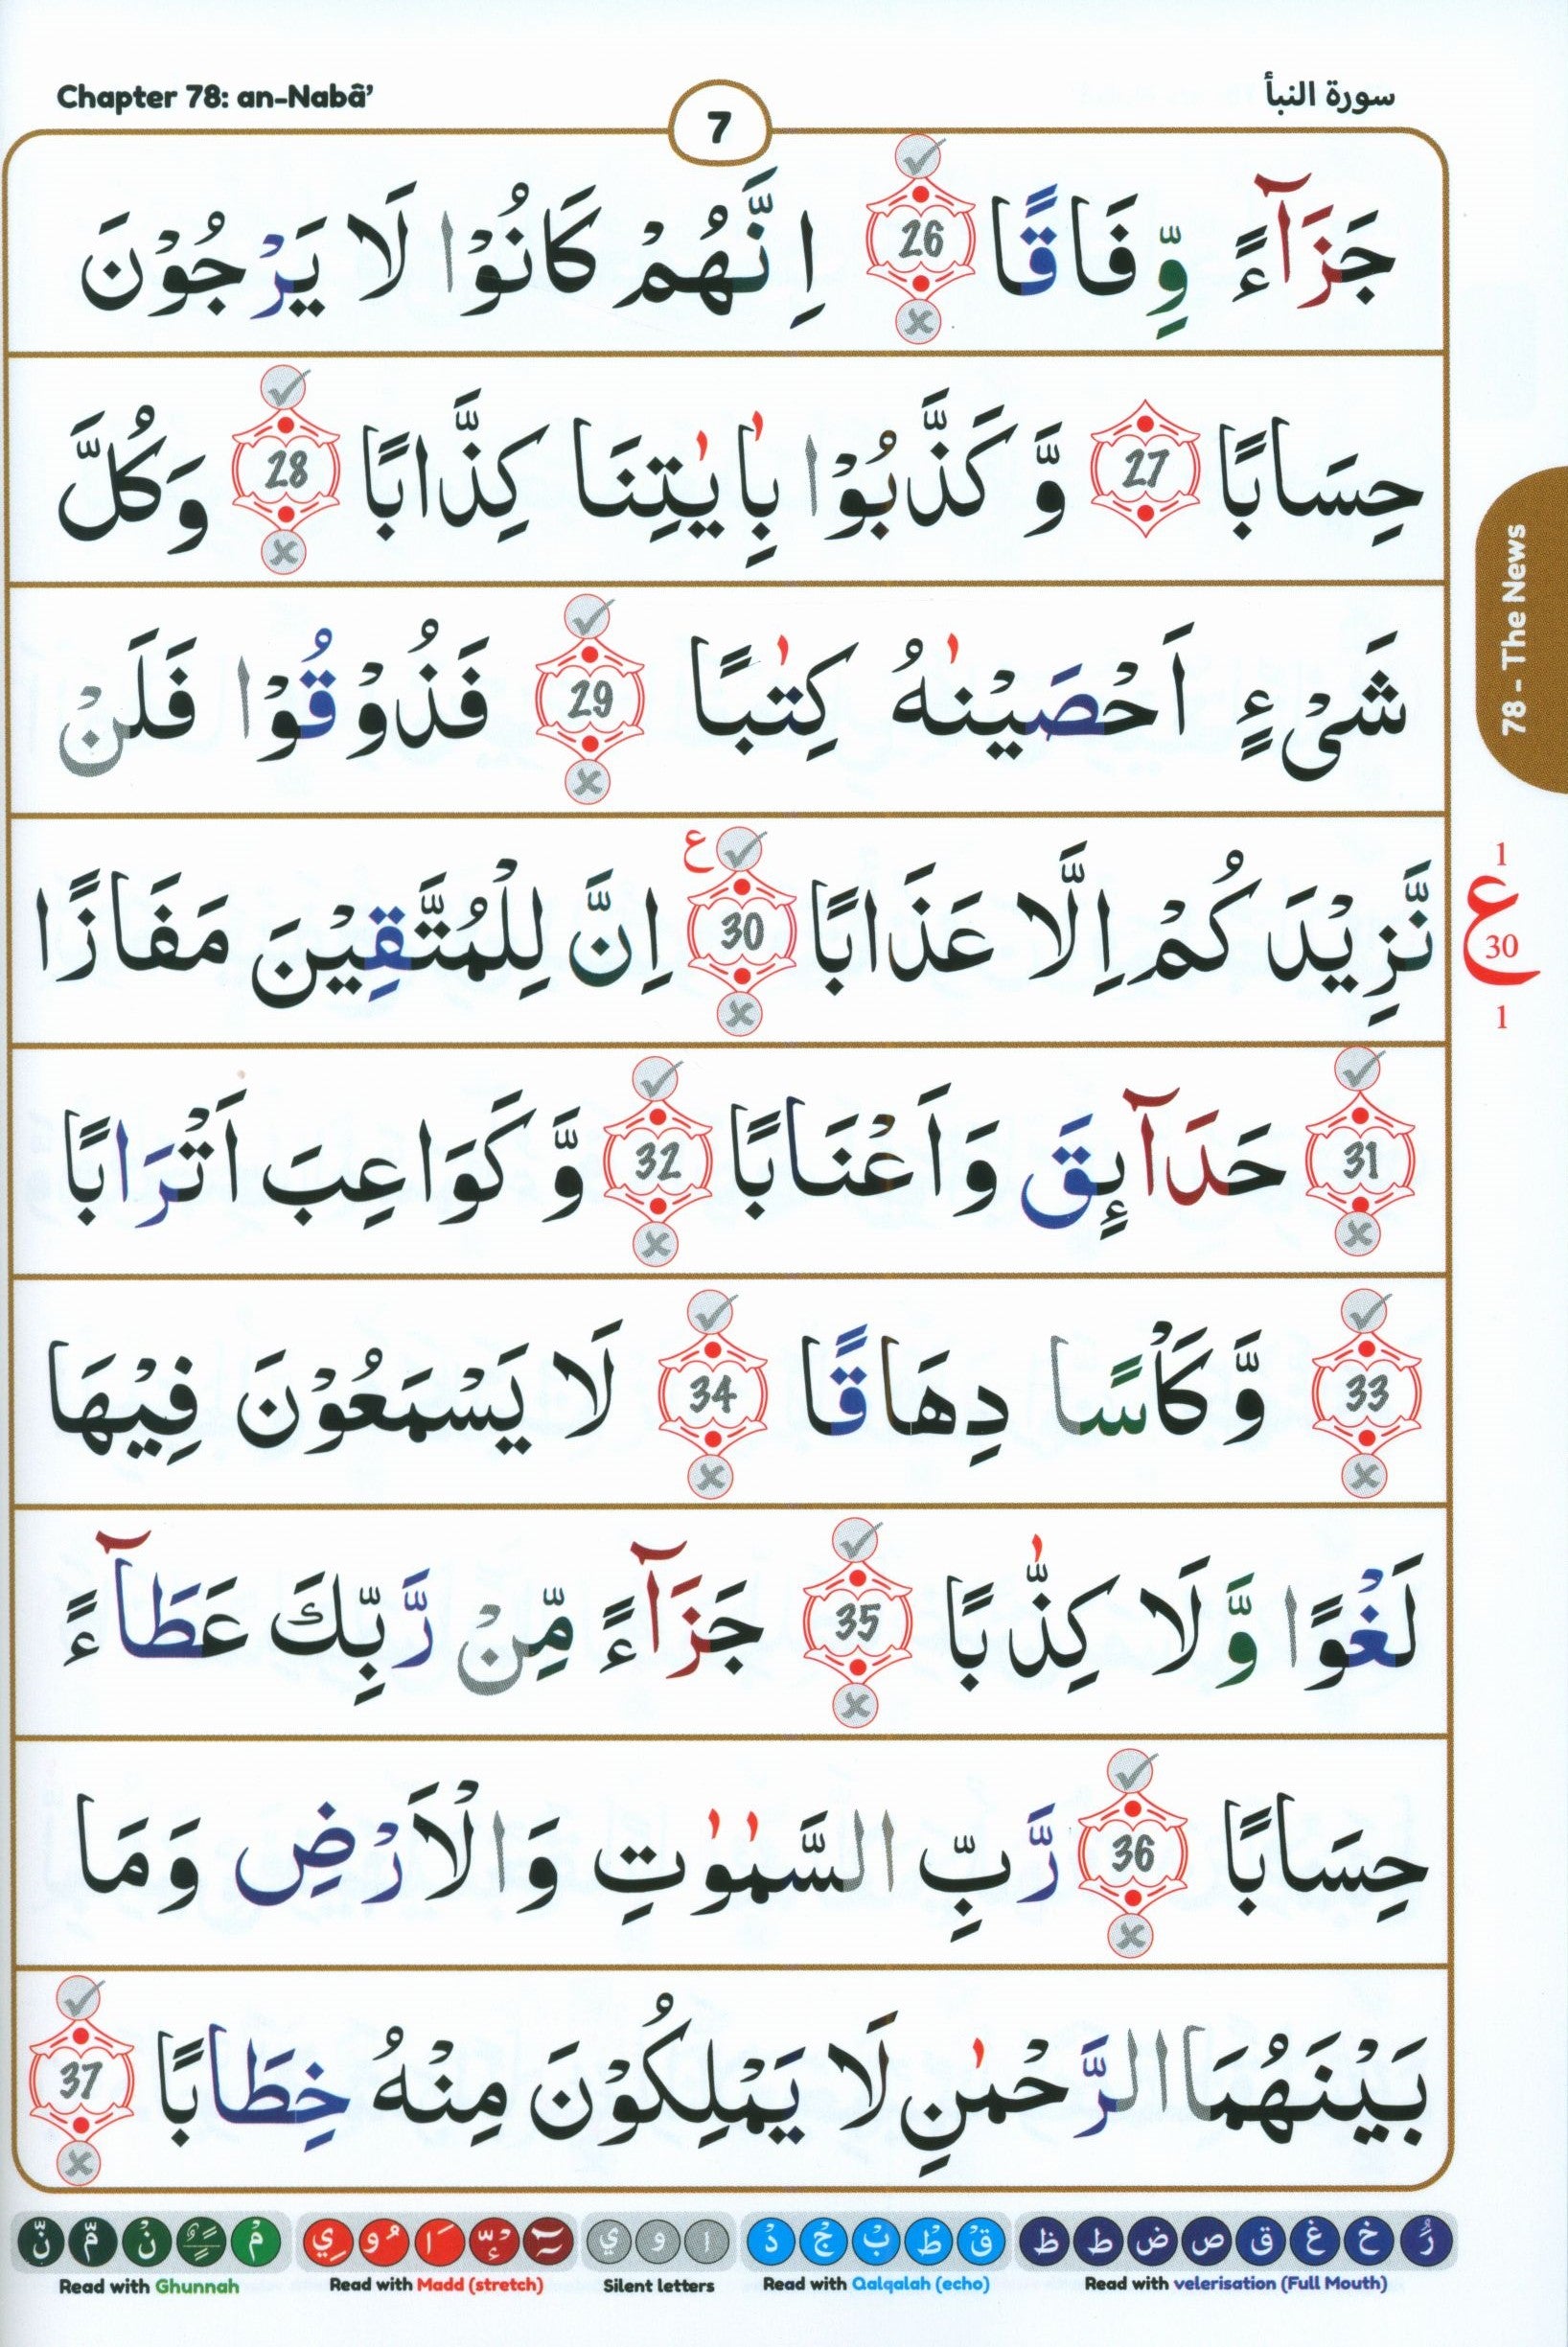 Chapter 78: an-Nabā’ 7 سورة النبأ
جَزَآءً وِّفَاقًا 26 اِنَّهُمْ كَانُوْا لَا يَرْجُوْنَ
حِسَابًا 27 وَّ كَذَّبُوْا بِاٰيٰتِنَا كِذَّابًا 28 وَكُلَّ
شَىْءٍ اَحْصَيْنٰهُ كِتٰبًا 29 فَذُوْقُوْا فَلَنْ
نَّزِيْدَ كُمْ اِلَّا عَذَابًا 30 ع اِنَّ لِلْمُتَّقِيْنَ مَفَازًا
31 حَدَآئِقَ وَاَعْنَابًا 32 وَّ كَوَاعِبَ اَتْرَابًا
33 وَّكَاْسًا دِهَاقًا 34 لَا يَسْمَعُوْنَ فِيْهَا
لَغْوًا وَّ لَا كِذّٰبًا 35 جَزَآءً مِّنْ رَّبِّكَ عَطَآءً
حِسَابًا 36 رَّبِّ السَّمٰوٰتِ وَالْاَرْضِ وَمَا
بَيْنَهُمَا الرَّحْمٰنِ لَا يَمْلِكُوْنَ مِنْهُ خِطَابًا 37
78 - The News
1
ع
30
1
نّ مّ نْ ـًـٍـٌ مْ
ي و ا
دْ جْ بْ طْ قْ
ظ ط ض ص ق غ خ رُ
Read with Ghunnah
Read with Madd (stretch)
Silent letters
Read with Qalqalah (echo)
Read with velerisation (Full Mouth)